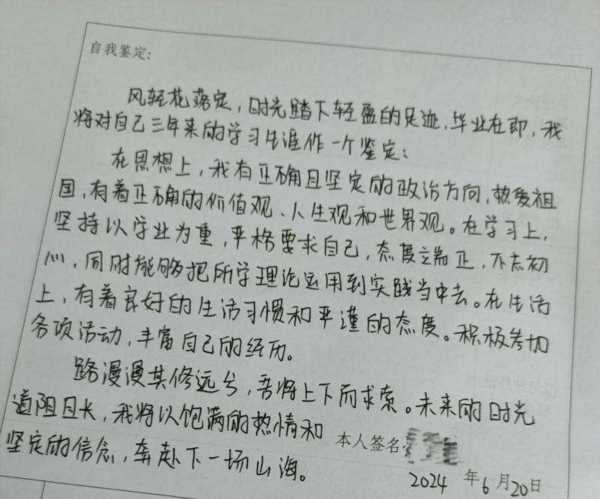 自我鉴定:
风轻花落定,时光踏下轻盈的足迹,毕业在即,我
将对自己三年来的学习生涯作一个鉴定:
在思想上,我有正确且坚定的政治方向,热爱祖
国,有着正确的价值观、人生观和世界观。在学习上,
坚持以学业为重,严格要求自己,态度端正,不忘初
心,同时能够把所学理论运用到实践当中去。在生活
上,有着良好的生活习惯和严谨的态度。积极参加
各项活动,丰富自己的经历。
路漫漫其修远兮,吾将上下而求索。未来的时光
道阻且长,我将以饱满的热情和
坚定的信念,奔赴下一场山海。
本人签名:
2024 年 6 月 20 日